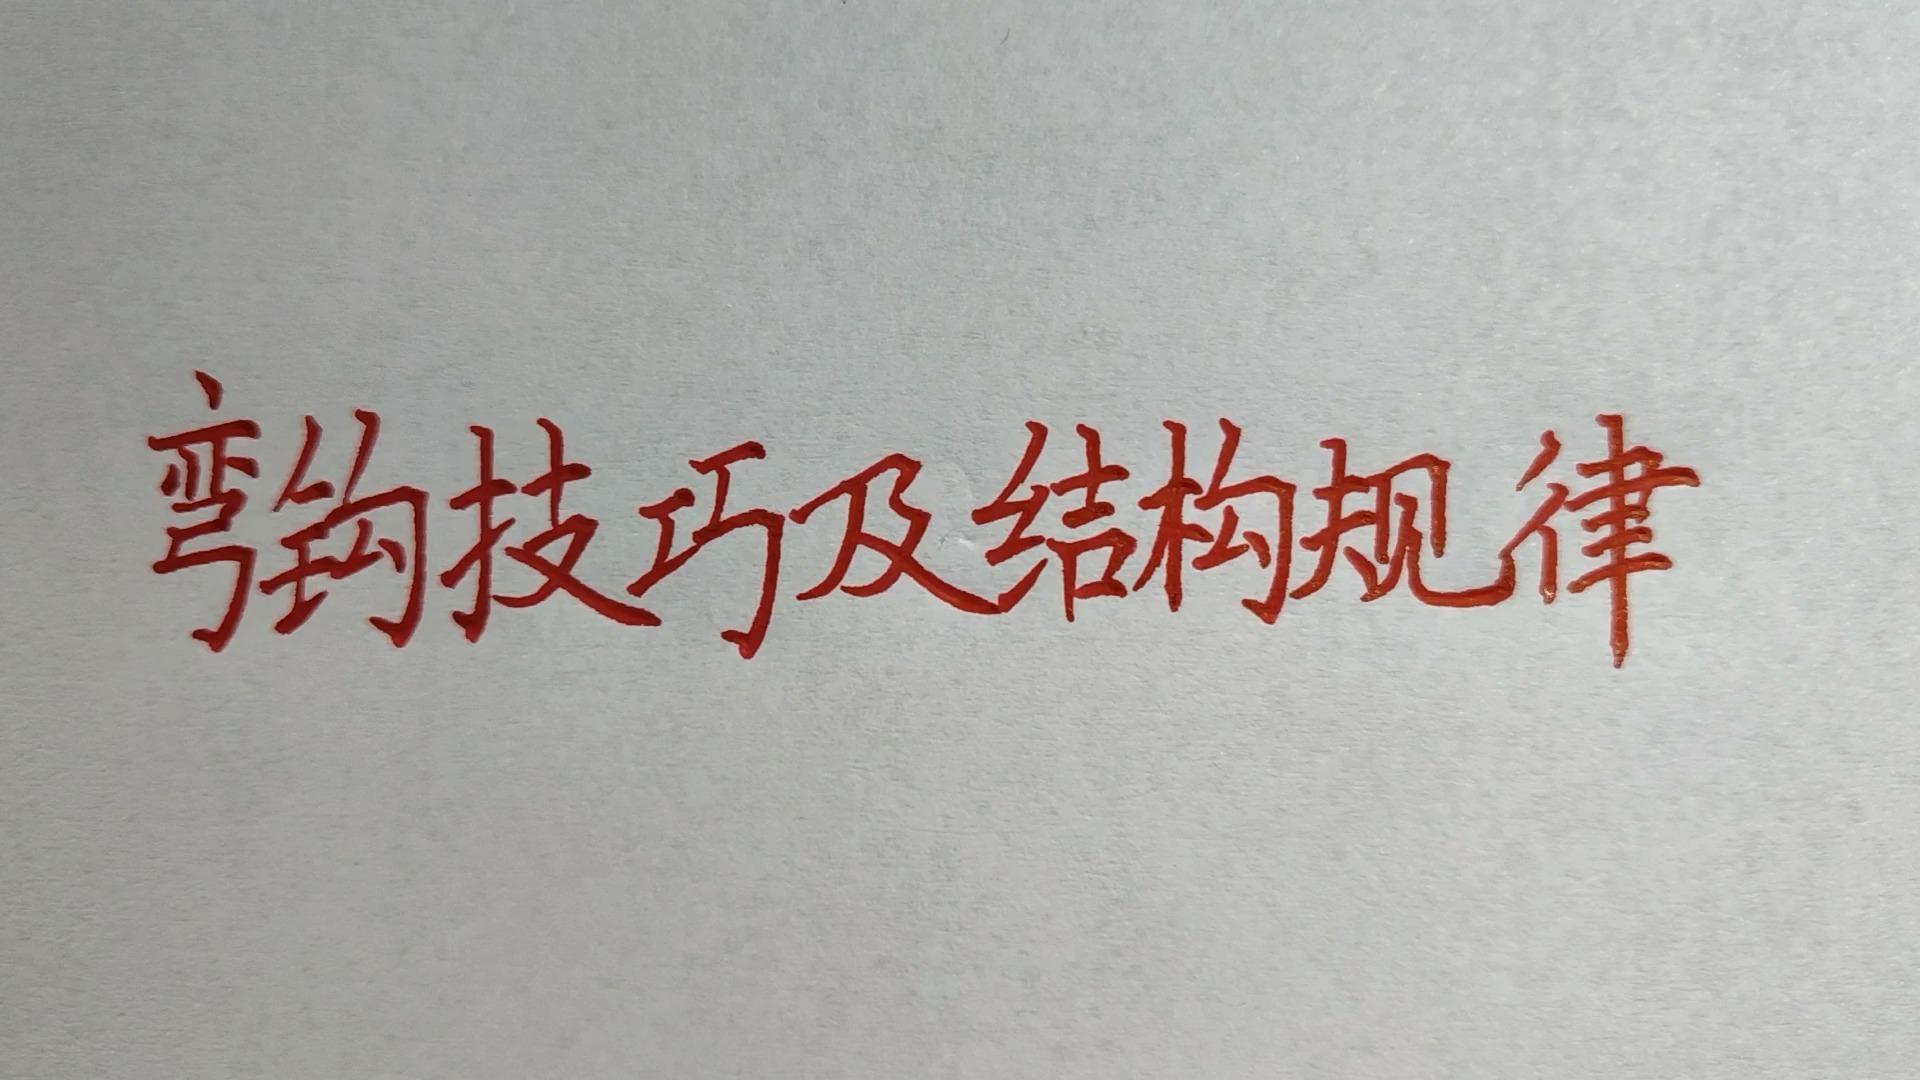 弯钩技巧及结构规律